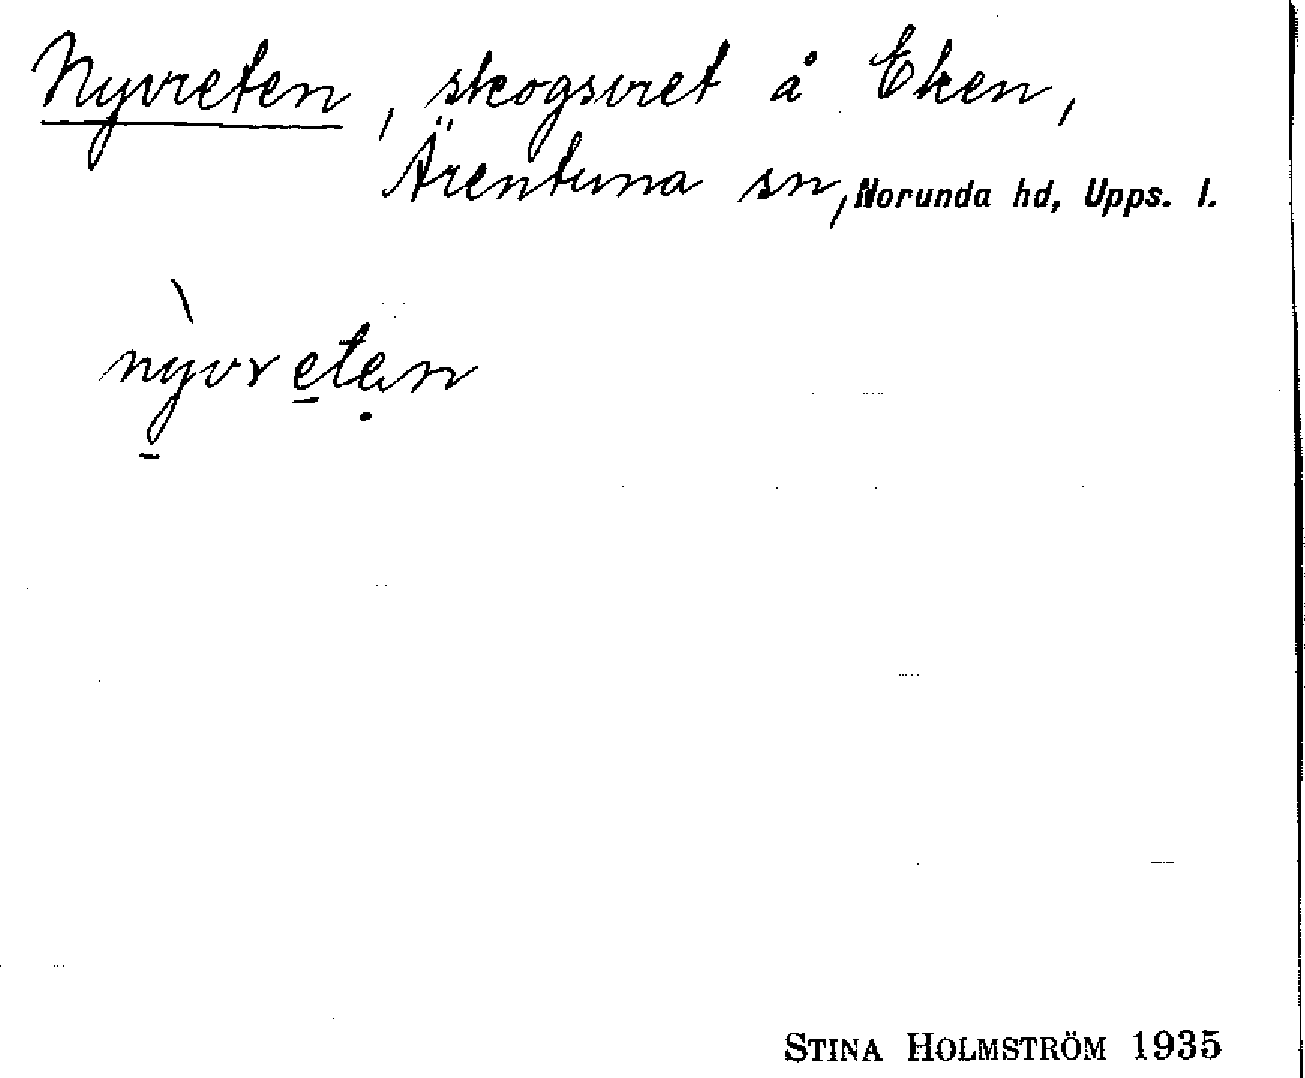 Nyvreten, skogsvret å Eken,
Ärentuna sn, Norunda hd, Upps. l.
nỳ̠vre̠tẹn
STINA HOLMSTRÖM 1935